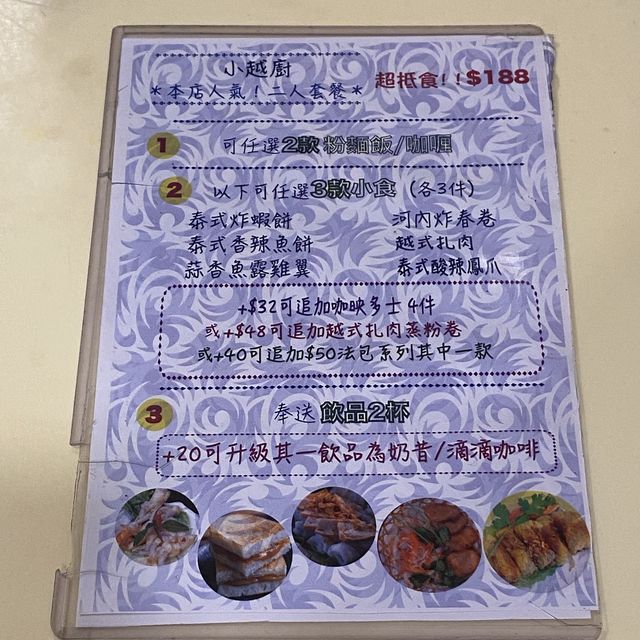 小越廚
*本店人氣!二人套餐*
超抵食!!$188
1 可任選2款粉麵飯/咖喱
2 以下可任選3款小食 (各3件)
泰式炸蝦餅 河內炸春卷
泰式香辣魚餅 越式扎肉
蒜香魚露雞翼 泰式酸辣鳳爪
+$32可追加咖央多士 4件
或+$48可追加越式扎肉蒸粉卷
或+40可追加$50法包系列其中一款
3 奉送 飲品2杯
+20可升級其一飲品為奶昔/滴滴咖啡